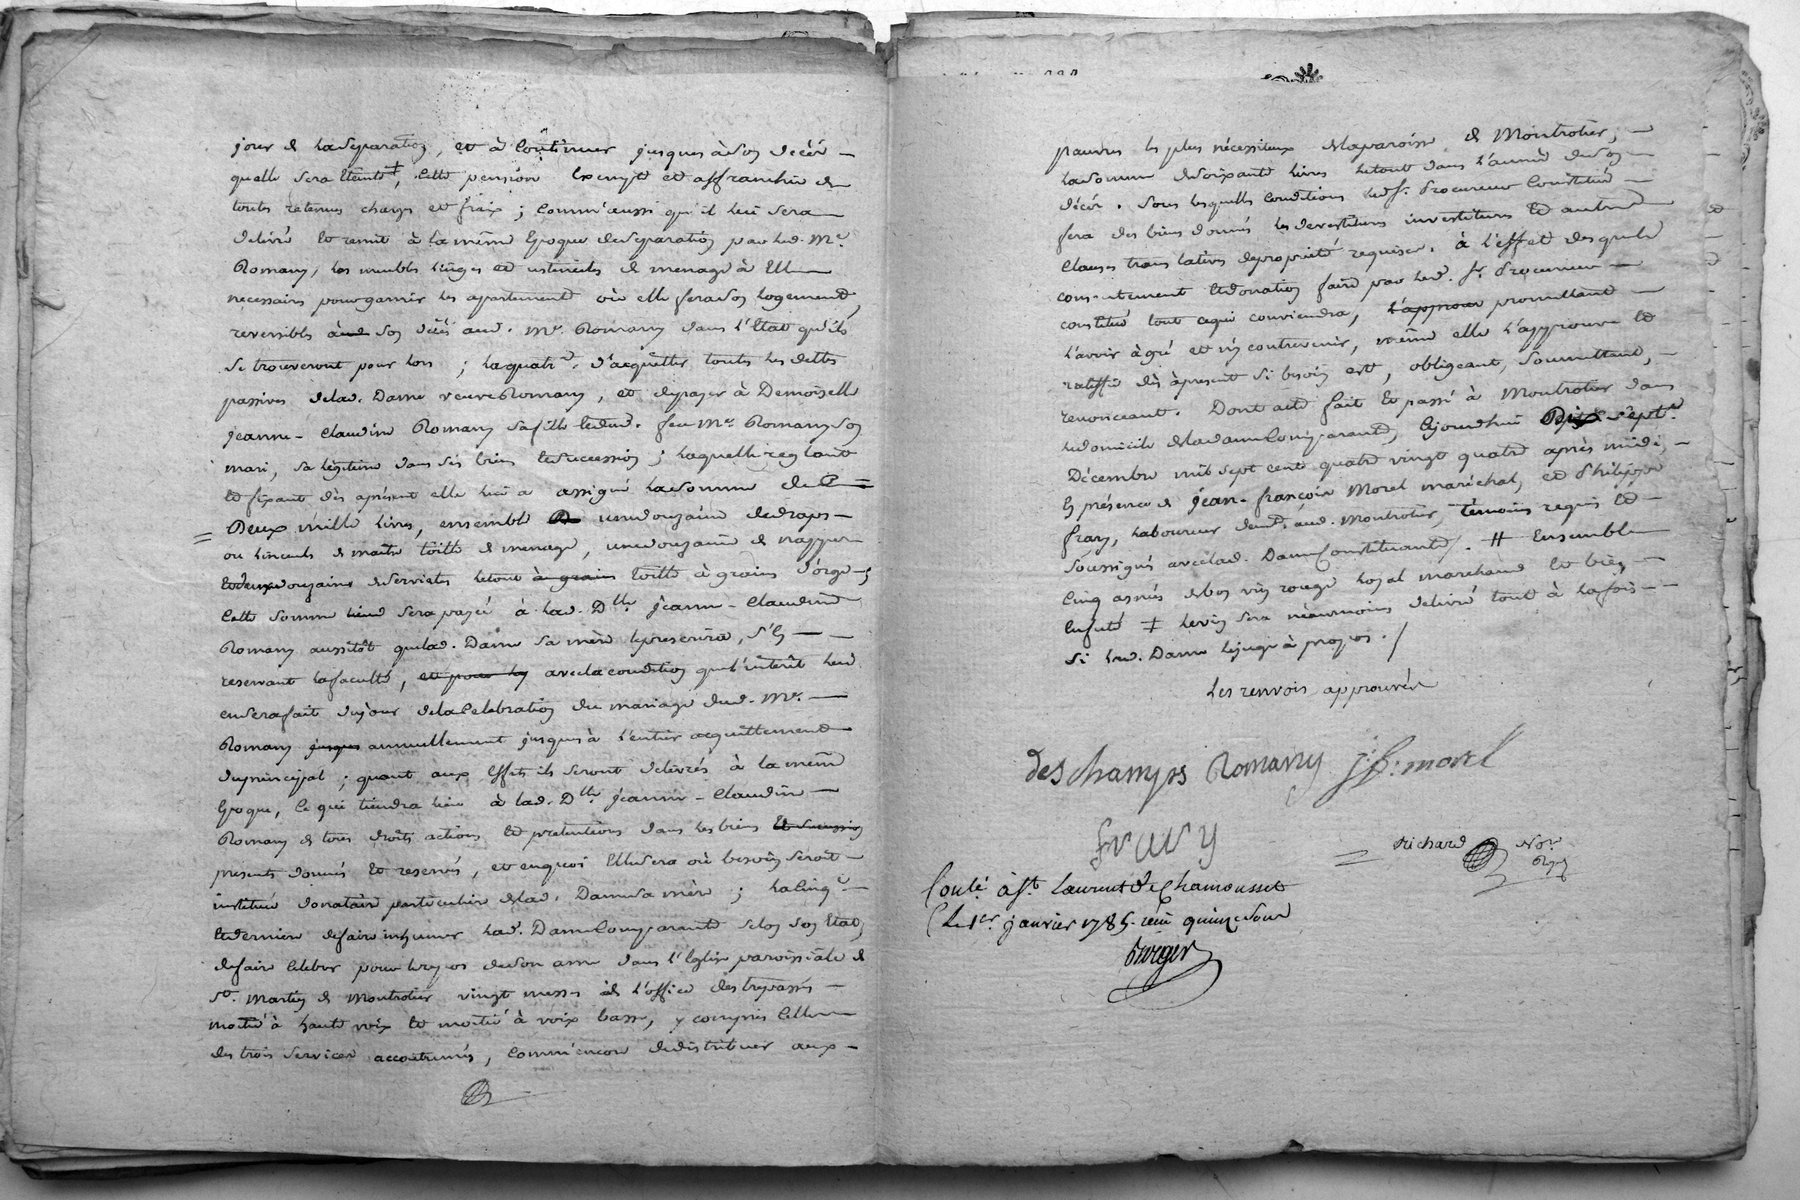 jour de la separation, et à continuer jusques à son décès —
quelle sera éteinte ‡, cette pension exempte et affranchie de
toutes retenues charges et fraix ; comm'aussi qu'il lui sera —
délivré et remit à la même époque de separation par led. Me.
Romany, les meubles linges et ustenciles de menage à Elle
nécessaires pour garnir les apartements où elle fera son logement,
reversibles à son décès aud. Me. Romany dans l'Etat qu'ils
se trouveront pour lors ; la quatre. d'acquitter toutes les dettes
passives de lad. Dame veuve Romany, et de payer à Demoiselle
Jeanne-Claudine Romany sa fille et dud. feu Me. Romany son
mari, sa légitime dans ses biens et succession ; laquelle reglant
et fixant dès aprésent elle lui a assigné la somme de
= Deux mille livres, ensemble une douzaine de draps —
ou linceuls de maître toille de menage, une douzaine de nappes
et deux douzaines de serviettes le tout à grains toille à grains d'orge — ;
cette somme lieu sera payée à lad. Dlle. Jeanne-Claudine
Romany aussitôt que lad. Dame sa mère le prescrira, s'en — —
reservant la faculté, et pour les avec la condition que l'intérêt lieu
en sera fait du jour de la célébration du mariage dud. Me. —
Romany jusques annuellement jusques à l'entier acquittement
du principal ; quant aux effets ils seront délivrés à la même
époque, ce qui tiendra lieu à lad. Dlle. Jeanne-Claudine —
Romany de tous droits actions et prétentions dans les biens et succession
présents donnés et reservés, et en quoi Elle sera où besoin seroit —
instituée donataire particuliere de lad. Dame sa mère ; la cinqe. —
et derniere de faire inhumer lad. Dame Comparante selon son Etat,
de faire célébrer pour le repos de son ame dans l'église paroissiale de
St. Martin de Montrotier vingt messes de l'office des trepassés —
moitié à haute voix et moitié à voix basse, y compris celles
des trois services accoutumés, comm'encore de distribuer aux —
pauvres les plus nécessiteux de la paroisse de Montrotier, —
la somme de soixante livres le tout dans l'année de son —
décès. Sous lesquelles conditions led. Sr. Procureur Constitué —
fera des biens donnés les devestitures investitures et autres
clauses translatives de propriété requises. à l'effet desquels
consentement et donation faira par led. Sr. Procureur —
constitué tout ce qui conviendra, l'approuve promettant —
l'avoir à gré et n'y contrevenir, même elle l'approuve et
ratiffie dès àprésent si besoin est, obligeant, soumettant, —
renonceant. Dont acte fait et passé à Montrotier dans
le domicile de la dame Comparante, cejourdhui sept.
Décembre mil sept cent quatre vingt quatre après midi, —
En présence de Jean-françois Morel maréchal, et Philippe
frary, laboureur demts. aud. Montrotier, témoins requis et —
soussignés avec lad. Dame Constituante. # Ensemble
cinq asnées de bon vin rouge loyal marchand et bien —
enfuté ‡ le vin sera néanmoins délivré tout à la fois —
si lad. Dame le juge à propos. /
Les renvois approuvés
deschamps Romany j. f. morel
frary
= Richard Nore.
Royal
Contlé à St. Laurent de Chamousset
Le 1er. janvier 1785. reçu quinze sous